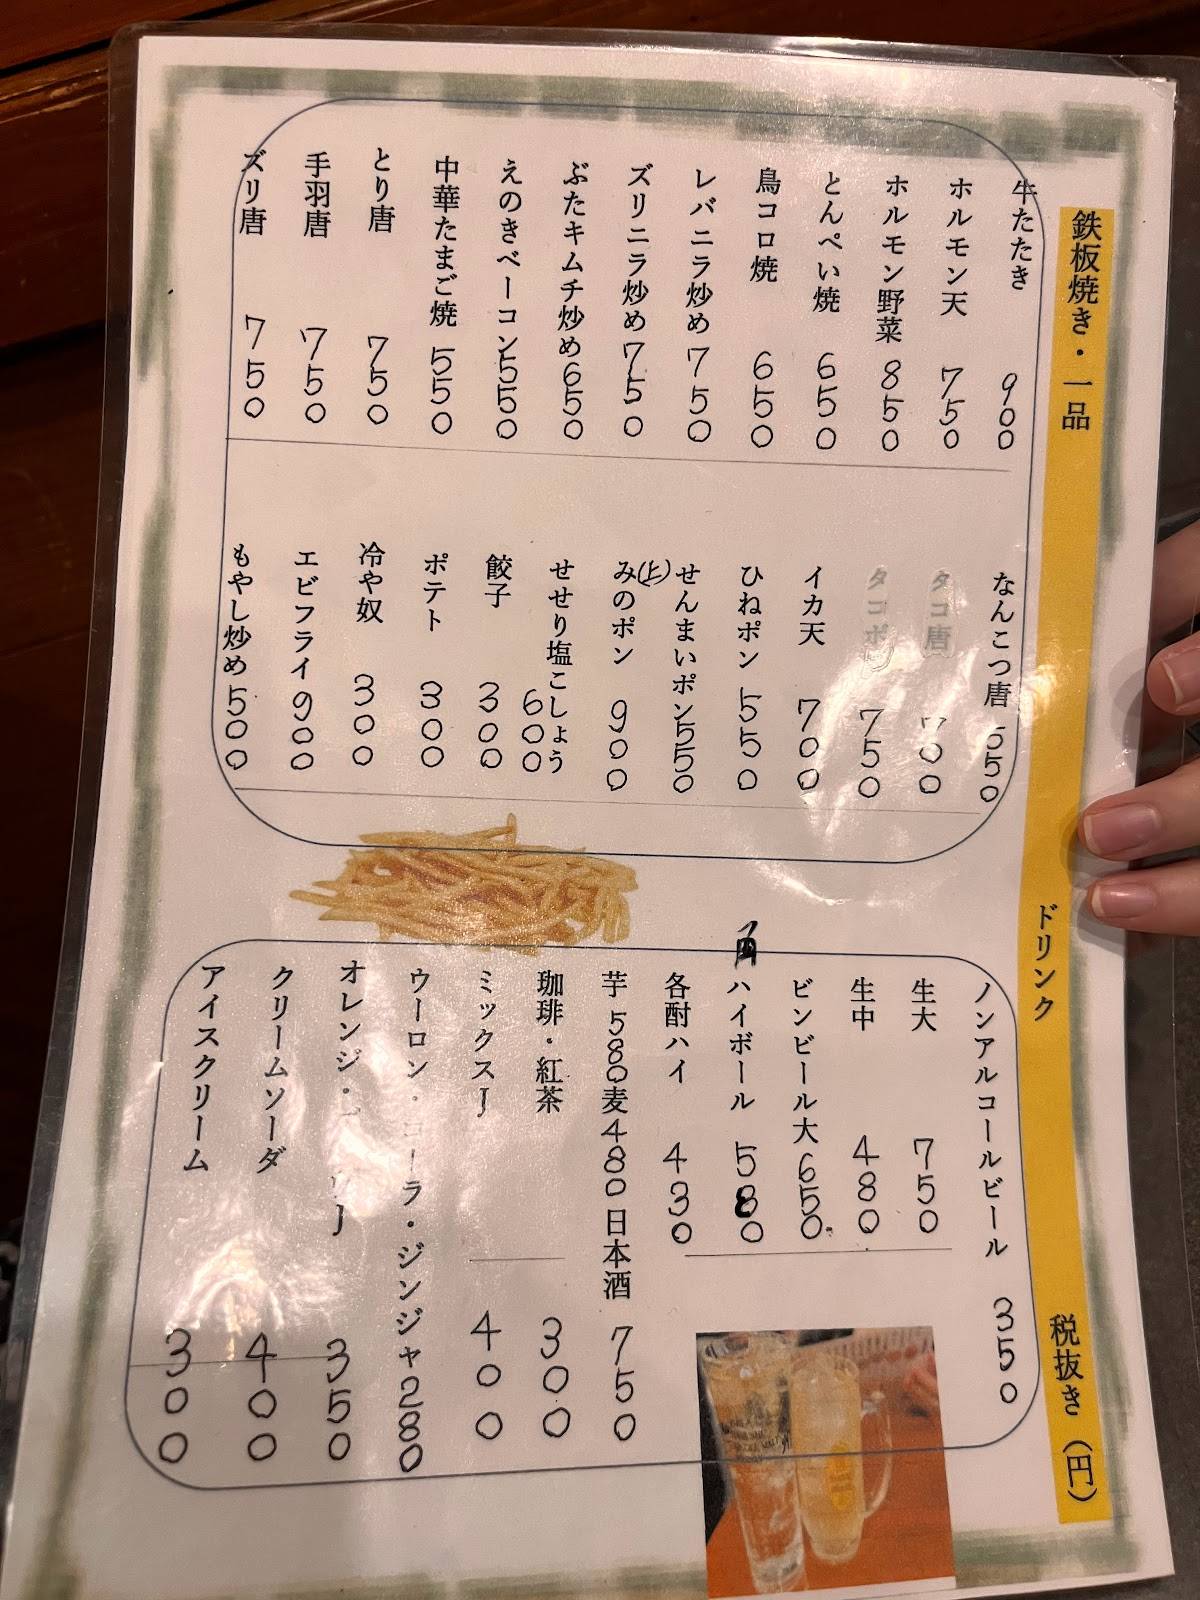 鉄板焼き・一品
牛たたき 900
ホルモン天 750
ホルモン野菜 850
とんぺい焼 650
鳥コロ焼 650
レバニラ炒め 750
ズリニラ炒め 750
ぶたキムチ炒め 650
えのきベーコン 550
中華たまご焼 550
とり唐 750
手羽唐 750
ズリ唐 750
なんこつ唐 550
タコ唐 700
タコポン 750
イカ天 700
ひねポン 550
せんまいポン 550
(上)みのポン 900
せせり塩こしょう 600
餃子 300
ポテト 300
冷や奴 300
エビフライ 900
もやし炒め 500
ドリンク
税抜き（円）
ノンアルコールビール 350
生大 750
生中 480
ビンビール大 650
角ハイボール 580
各酎ハイ 430
芋 580 麦 480 日本酒 750
珈琲・紅茶 300
ミックスJ 400
ウーロン・コーラ・ジンジャ 280
オレンジ・ J 350
クリームソーダ 400
アイスクリーム 300